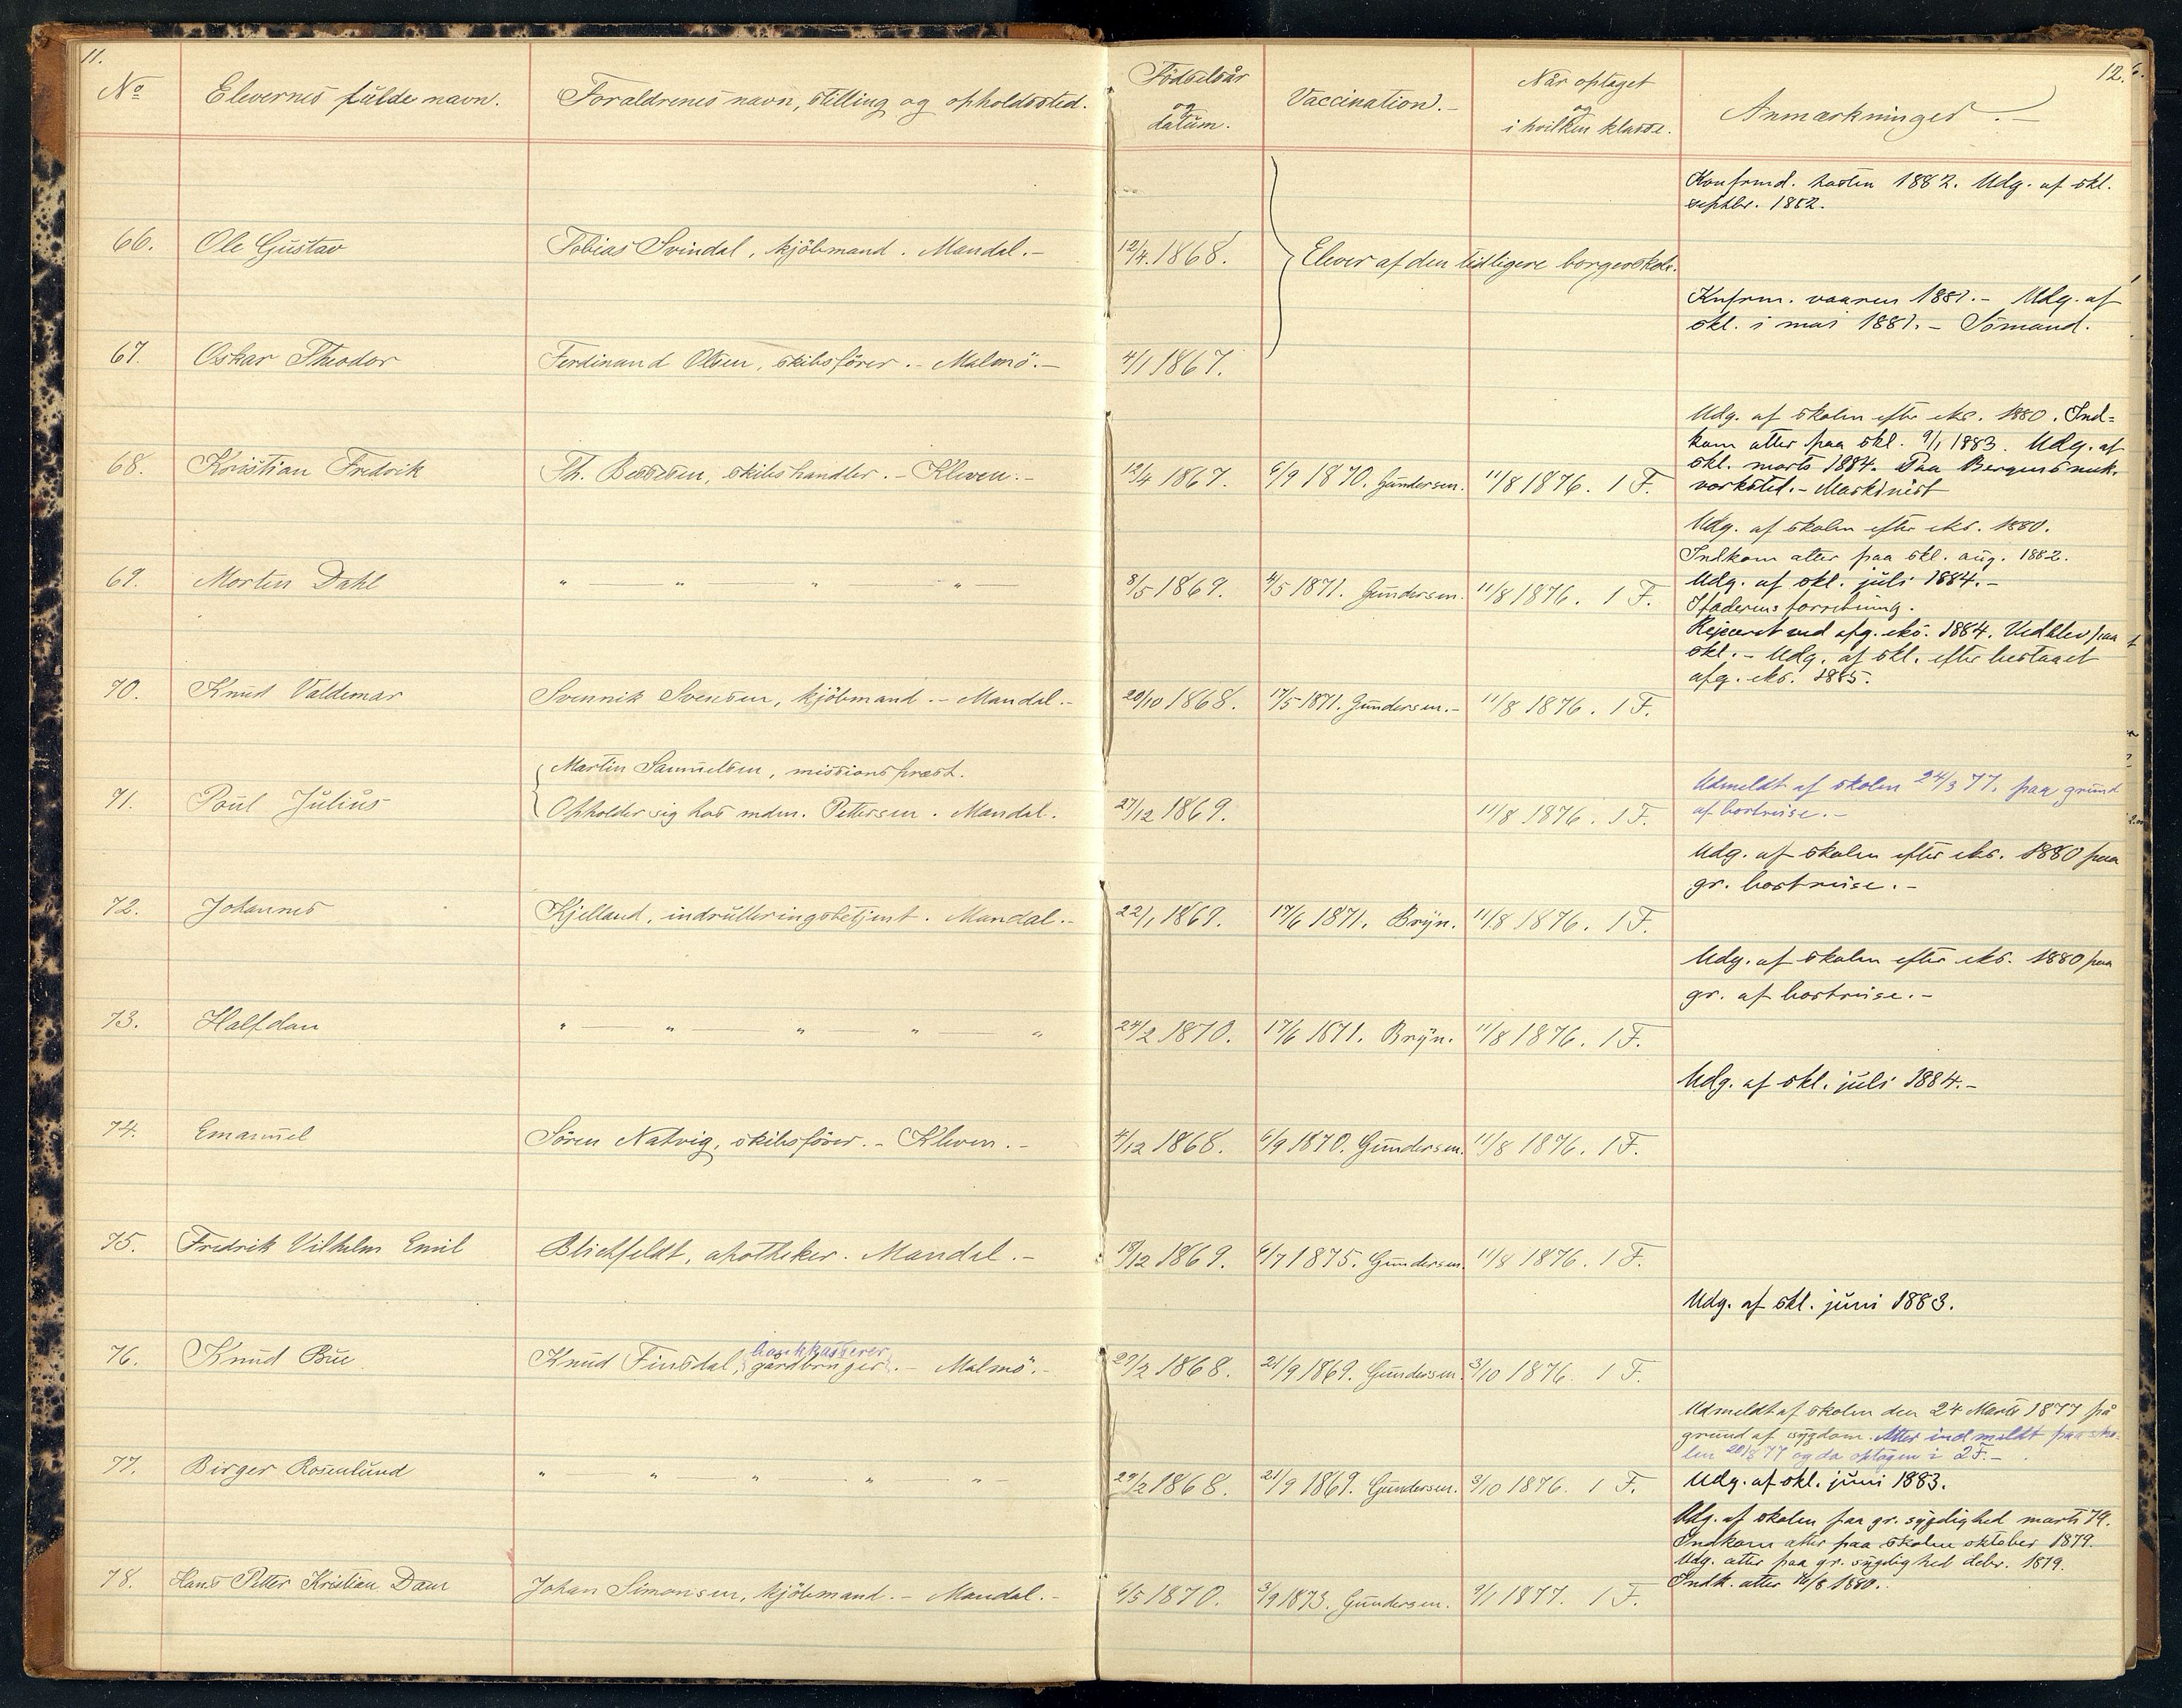 11.
12.
No Elevernes fulde navn. Forældrenes navn, stilling og opholdssted. Födselsår og datum. Vaccination.- Når optaget og i hvilken klasse. Anmærkninger.-
Konfrmd. høsten 1882. Udg. af skl.
septbr. 1882.
66. Ole Gustav Tobias Svindal, kjöbmand. Mandal.- 12/4. 1868. Elever af den tidligere borgerskole.
Knfrm. vaaren 1881.- Udg. af
skl. i mai 1881.- Sömand.
67. Oskar Theodor Ferdinand Olsen, skibsförer.- Malmö.- 4/1 1867.
Udg. af skolen efter eks. 1880. Ind=
kom atter paa skl. 9/1 1883. Udg. af
skl. marts 1884. Paa Bergens mek.
68. Kristian Fredrik Th. Bessesen, skibshandler.- Kleven.- 12/4 1867. 6/9 1870. Gundersen. 11/8 1876. 1 F. værksted.- Maskinist
Udg. af skolen efter eks. 1880.
Indkom atter paa skl. aug. 1882.
69. Morten Dahl " " " " 8/5 1869. 4/5 1871. Gundersen. 11/8 1876. 1 F. Udg. af skl. juli 1884.-
I faderens forretning.
Rejiceret ved afg. eks. 1884. Vedblev paa
skl.- Udg. af skl. efter bestaaet
afg. eks. 1885.
70. Knud Valdemar Svennik Svendsen, kjöbmand.- Mandal.- 20/10 1868. 17/5 1871. Gundersen.- 11/8 1876. 1 F.
Martin Samuelsen, missionspræst.
Udmeldt af skolen 24/3 77. paa grund
71. Poul Julius Opholder sig hos mdm. Pettersen. Mandal. 27/12 1869. 11/8 1876. 1 F. af bortreise.-
Udg. af skolen efter eks. 1880 paa
gr. bortreise.-
72. Johannes Kjelland, indrulleringsbetjent. Mandal.- 22/1 1869. 17/6 1871. Bryn. 11/8 1876. 1 F.
Udg. af skolen efter eks. 1880 paa
gr. af bortreise.-
73. Halfdan " " " " " 24/2 1870. 17/6 1871. Bryn. 11/8 1876. 1 F.
Udg. af skl. juli 1884.-
74. Emanuel Sören Natvig, skibsförer.- Kleven.- 4/12 1868. 6/9 1870. Gundersen. 11/8 1876. 1 F.
75. Fredrik Vilhelm Emil Blichfeldt, apotheker. Mandal.- 18/12 1869. 6/7 1875. Gundersen. 11/8 1876. 1 F.
Udg. af skl. juni 1883.
bankkasserer
76. Knud Bue Knud Finsdal, gårdbruger.- Malmö.- 29/2 1868. 21/9 1869. Gundersen. 3/10 1876. 1 F.
Udmeldt af skolen den 24 Marts 1877 på
grund af sygdom. Atter indmeldt paa sko-
len 20/8 77 og da optagen i 2 F.-
77. Birger Rosenlund " " " " " 29/2 1868. 21/9 1869. Gundersen. 3/10 1876. 1 F. Udg. af skl. juni 1883.
Udg. af skolen paa gr. sygdighed marts 79.
Indkom atter paa skolen oktober 1879.
Udg. atter paa gr. sygdighed debr. 1879.
Indk. atter 16/8 1880.
78. Hans Petter Kristian Dam Johan Simonsen, kjöbmand.- Mandal.- 6/5 1870. 3/9 1873. Gundersen. 9/1 1877. 1 F.